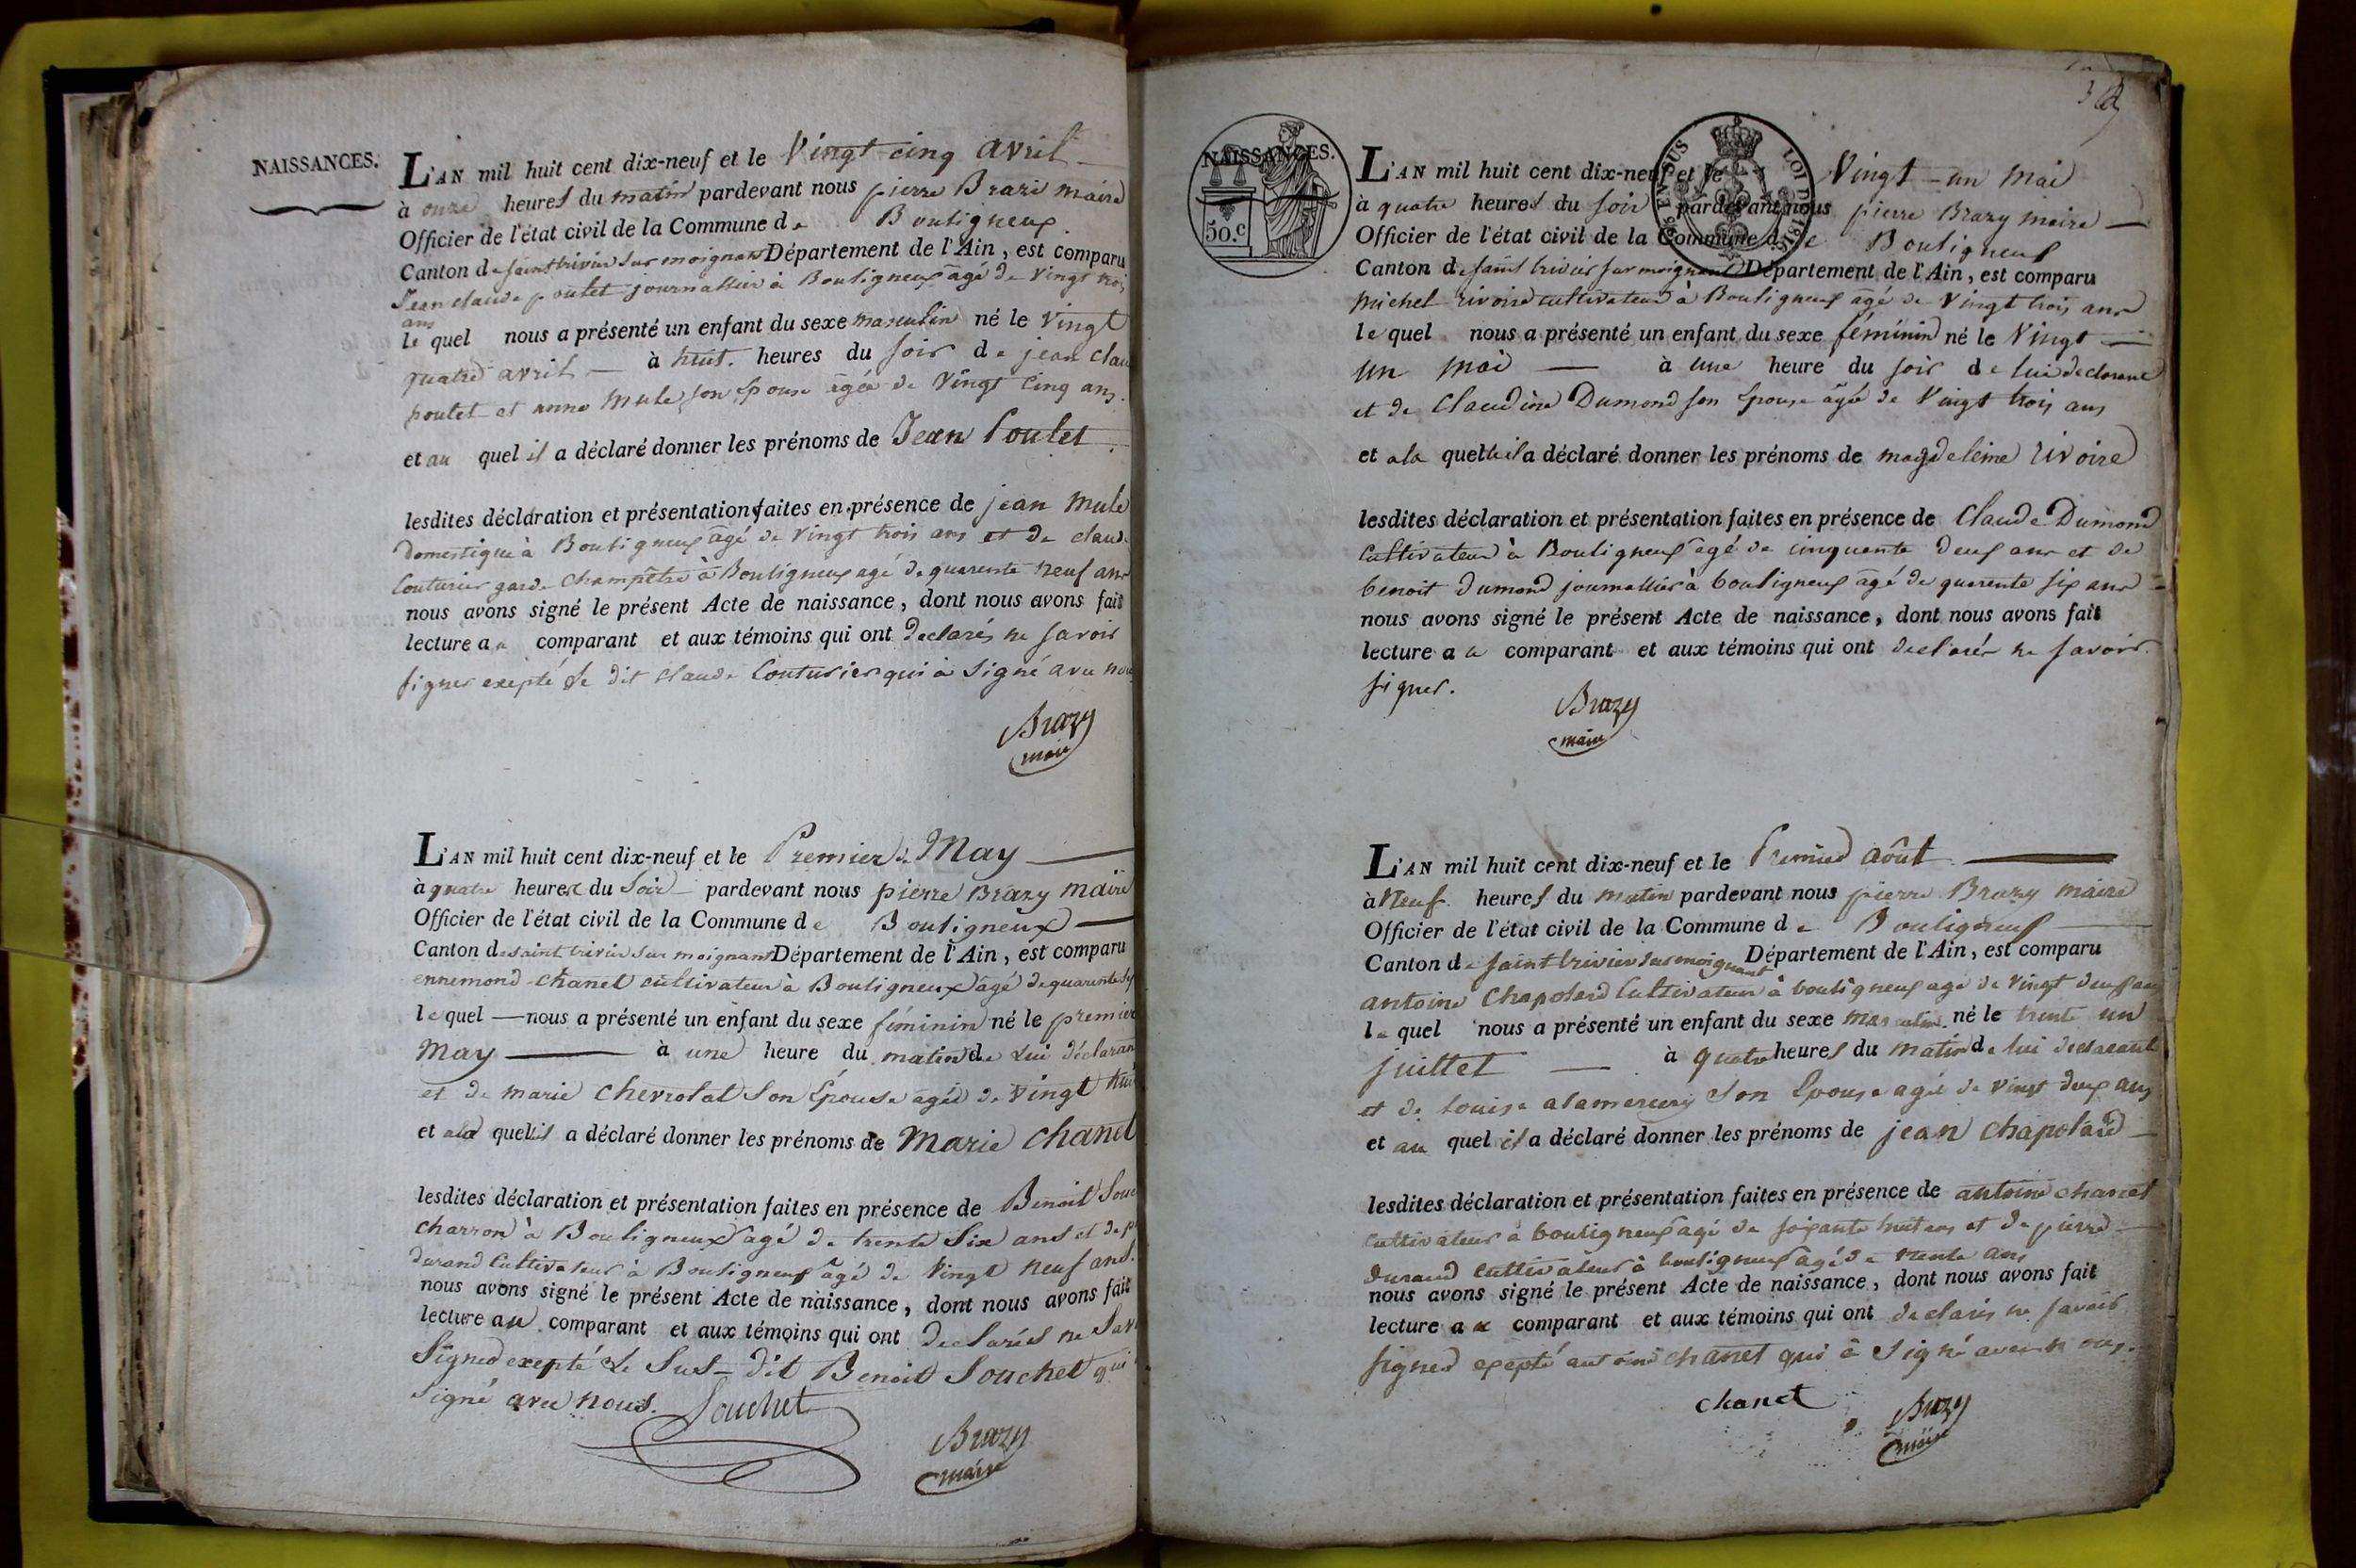 NAISSANCES.
L'AN mil huit cent dix-neuf et le Vingt cinq avril
à onze heures du matin pardevant nous pierre Brazi maire
Officier de l'état civil de la Commune de Bouligneux
Canton de saint trivier sur moignans Département de l'Ain, est comparu
Jean claude poulet journallier à Bouligneux âgé de Vingt trois
ans
le quel nous a présenté un enfant du sexe masculin né le Vingt
quatre avril — à huit heures du soir de jean clau
poulet et anne Mule son Epouse agée de Vingt Cinq ans.
et au quel il a déclaré donner les prénoms de Jean Poulet
lesdites déclaration et présentation faites en présence de jean Mule
Domestique à Bouligneux âgé de Vingt trois ans et de claude
Couturier garde Champêtre à Bouligneux agé de quarente neuf ans
nous avons signé le présent Acte de naissance, dont nous avons fait
lecture au comparant et aux témoins qui ont declarés ne savoir
signer exepté le dit claude Couturier qui à signé avec nou
Brazy
maire
L'AN mil huit cent dix-neuf et le Premier de May
à quatre heures du Soir pardevant nous pierre Brazy Maire
Officier de l'état civil de la Commune de Bouligneux
Canton de saint trivier sur moignans Département de l'Ain, est comparu
ennemond chanel cultivateur à Bouligneux âgé de quarente
le quel — nous a présenté un enfant du sexe féminin né le premier
May — à une heure du matin de Lui déclaran
et de marie Chevrolat Son Épouse agée de Vingt hui
et a la quelle il a déclaré donner les prénoms de Marie Chanel
lesdites déclaration et présentation faites en présence de Benoit Souc
Charron à Bouligneux âgé de trente Six ans et de p
Durand Cultivateur à Bouligneux âgé de Vingt neuf ans.
nous avons signé le présent Acte de naissance, dont nous avons fait
lecture au comparant et aux témoins qui ont declarés ne Sav
Signer exepté Le Sus-dit Benoit Souchet qui
signé avec nous. Souchet
Brazy
maire
NAISSANCES.
50.c
LOI DE 1816
L'AN mil huit cent dix-neuf et le Vingt-un mai
à quatre heures du soir pardevant nous pierre Brazy maire —
Officier de l'état civil de la Commune de Bouligneux
Canton de saint trivier sur moignans Département de l'Ain, est comparu
Michel rivoire cultivateur à Bouligneux âgé de Vingt trois ans
le quel nous a présenté un enfant du sexe féminin né le Vingt —
un mai — à une heure du soir de lui declarant
et de Claudine Dumond son Epouse âgée de Vingt trois ans
et a la quelle il a déclaré donner les prénoms de magdeleine rivoire
lesdites déclaration et présentation faites en présence de Claude Dumond
Cultivateur à Bouligneux âgé de cinquante deux ans et de
benoit Dumond journallier à bouligneux âgé de quarente six ans
nous avons signé le présent Acte de naissance, dont nous avons fait
lecture au comparant et aux témoins qui ont declarés ne savoir
signer.
Brazy
maire
L'AN mil huit cent dix-neuf et le Premier août
à Neuf heures du matin pardevant nous pierre Brazy maire
Officier de l'état civil de la Commune de Bouligneux
Canton de saint trivier sur moignant Département de l'Ain, est comparu
antoine Chapolard Cultivateur à bouligneux agé de vingt deux ans
le quel nous a présenté un enfant du sexe masculin né le trente un
juillet — à quatre heures du matin de lui declarant
et de louise alamercery Son Epouse agée de vingt deux ans
et au quel il a déclaré donner les prénoms de jean chapolard
lesdites déclaration et présentation faites en présence de antoine chanel
Cultivateur à bouligneux agé de soixante huit ans et de pierre
Durand cultivateur à bouligneux agé de trente ans
nous avons signé le présent Acte de naissance, dont nous avons fait
lecture au comparant et aux témoins qui ont declarés ne savoir
signer exepté antoine chanel qui à signé avec nous.
chanel
Brazy
maire